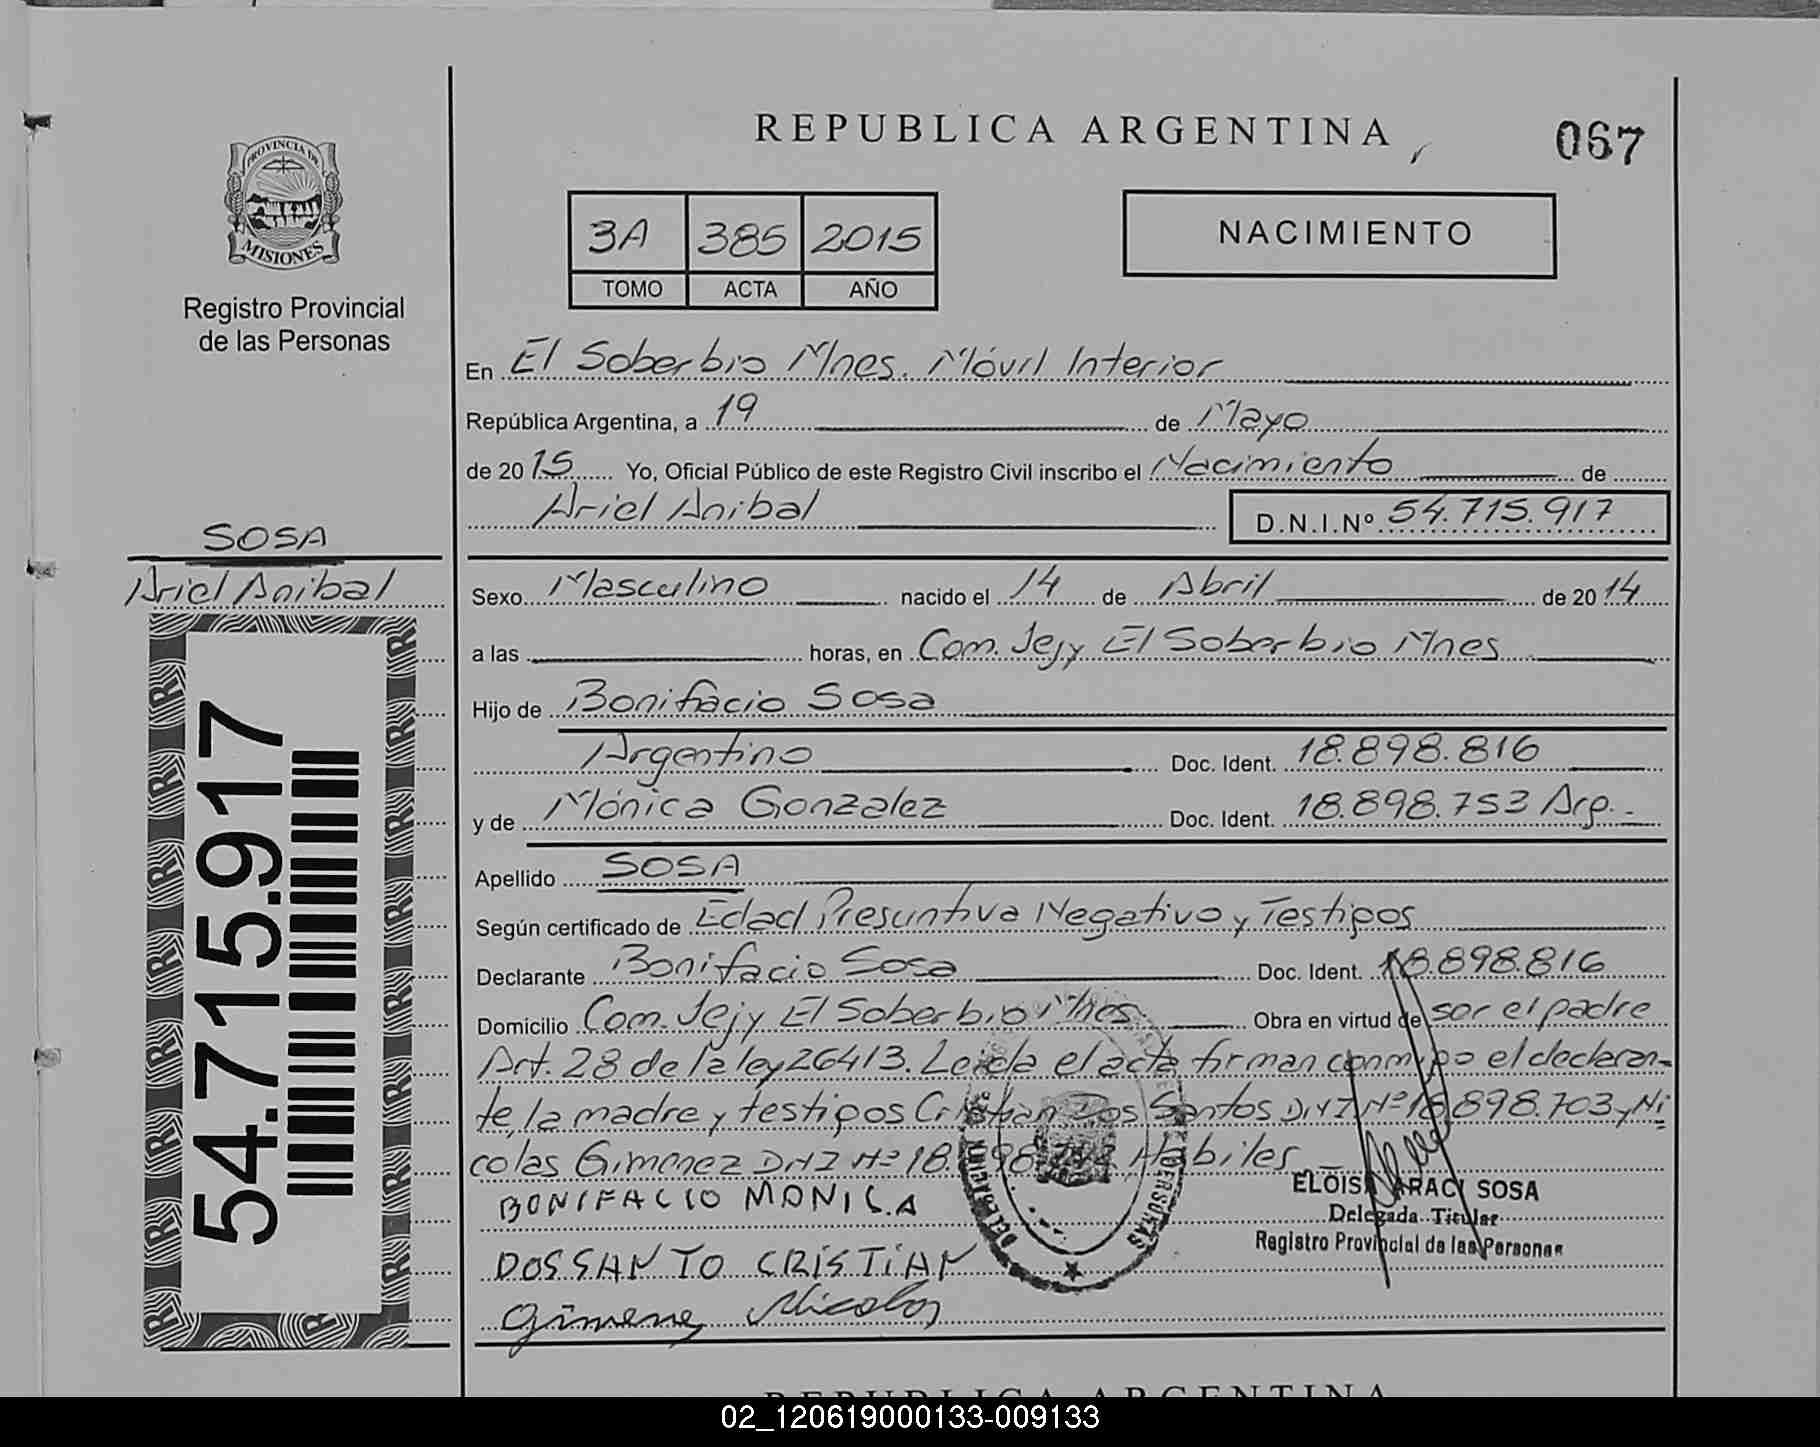 REPUBLICA ARGENTINA
067
PROVINCIA DE
MISIONES
Registro Provincial
de las Personas
3A 385 2015
TOMO ACTA AÑO
NACIMIENTO
En El Soberbio Mnes. Móvil Interior
República Argentina, a 19 de Mayo
de 2015 Yo, Oficial Público de este Registro Civil inscribo el Nacimiento de
Ariel Anibal D.N.I.Nº 54.715.917
SOSA
Ariel Anibal
54.715.917
Sexo Masculino nacido el 14 de Abril de 2014
a las horas, en Com. Jejy El Soberbio Mnes
Hijo de Bonifacio Sosa
Argentino Doc. Ident. 18.898.816
y de Mónica Gonzalez Doc. Ident. 18.898.753 Arg.-
Apellido SOSA
Según certificado de Edad Presuntiva Negativo y Testigos
Declarante Bonifacio Sosa Doc. Ident. 18.898.816
Domicilio Com. Jejy El Soberbio Mnes. Obra en virtud de ser el padre
Art. 28 de la ley 26413. Leida el acta firman conmigo el declaran-
te, la madre y testigos Cristian Dos Santos DNI Nº 18.898.703 y Ni
colas Gimenez DNI Nº Habiles
BONIFACIO MONICA
DOSSANTO CRISTIAN
Gimenez Nicolas
DE LAS PERSONAS
ELOISA ARACI SOSA
Delegada Titular
Registro Provincial de las Personas
REPUBLICA ARGENTINA
02_120619000133-009133